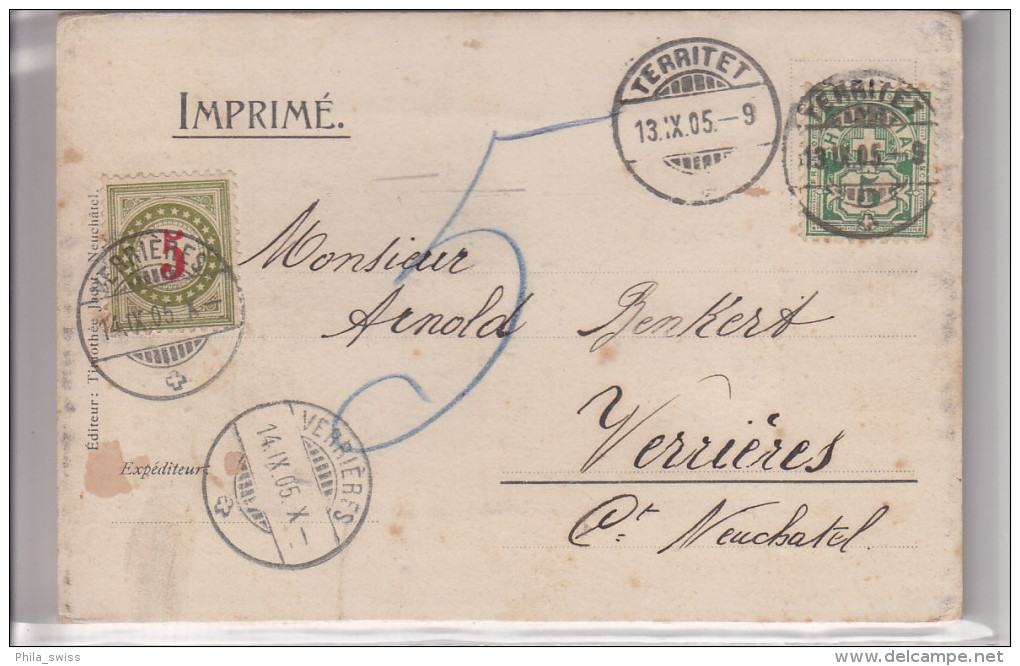 IMPRIMÉ.
TERRITET
13.IX.05.-9
TERRITET
13.IX.05.-9
5
5
VERRIÈRES
14.IX.05. X
5
Monsieur
Arnold Benkert
Verriéres
Ct. Neuchatel.
Éditeur: Timothée Jacot, Neuchâtel.
Expéditeur:
VERRIÈRES
14.IX.05. X-
Phila_swiss
delcampe.net